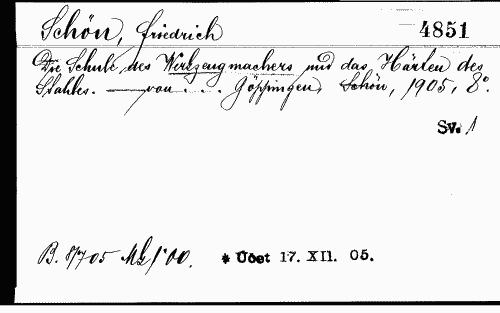 Schön, Friedrich 4851
Die Schule des Werkzeugmachers und das Härten des
Stahles. — von . . . Göppingen, Schön, 1905, 8°.
Sv. 1
B. 8/7 05 Mk 1.00. * Ucet 17. XII. 05.